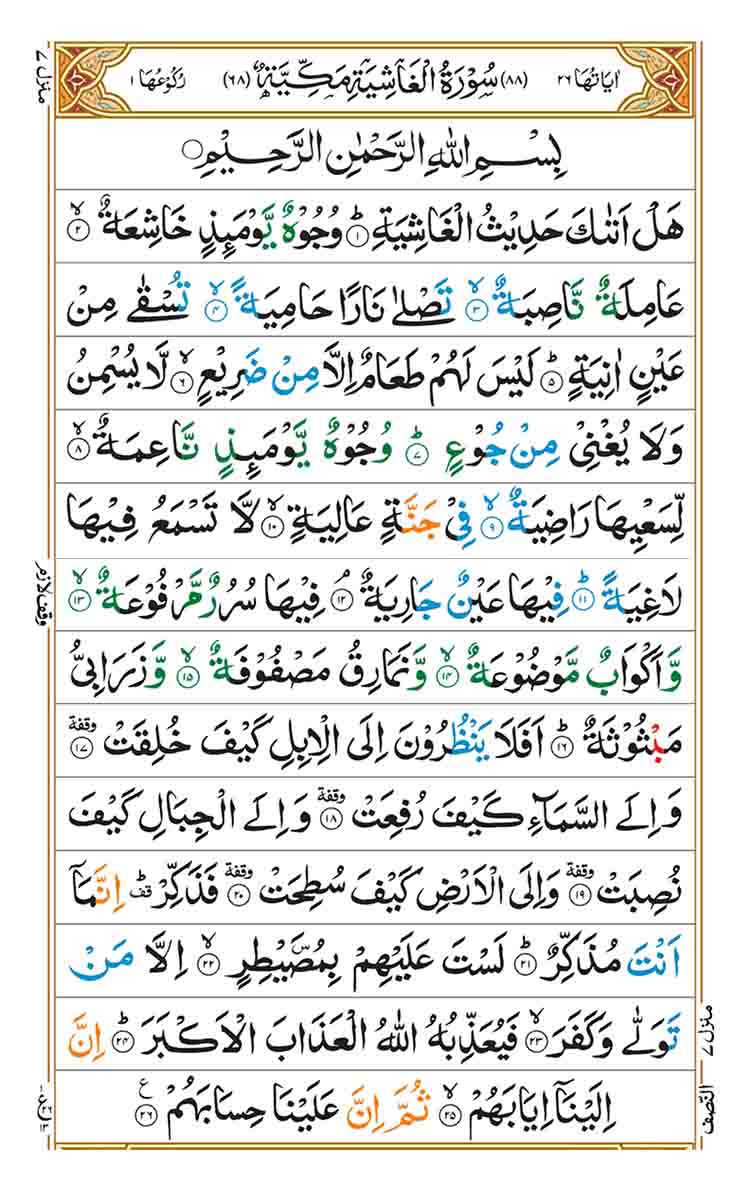 اٰيَاتُهَا ٢٦ (٨٨) سُوْرَةُ الْغَاشِيَةِ مَكِّيَّةٌ (٦٨) رُكُوْعُهَا ١
منزل ٧
بِسْمِ اللهِ الرَّحْمٰنِ الرَّحِيْمِ
هَلْ اَتٰىكَ حَدِيْثُ الْغَاشِيَةِ ؕ ١ وُجُوْهٌ يَّوْمَىِٕذٍ خَاشِعَةٌ ۙ ٢
عَامِلَةٌ نَّاصِبَةٌ ۙ ٣ تَصْلٰى نَارًا حَامِيَةً ۙ ٤ تُسْقٰى مِنْ
عَيْنٍ اٰنِيَةٍ ؕ ٥ لَيْسَ لَهُمْ طَعَامٌ اِلَّا مِنْ ضَرِيْعٍ ۙ ٦ لَّا يُسْمِنُ
وَلَا يُغْنِيْ مِنْ جُوْعٍ ؕ ٧ وُجُوْهٌ يَّوْمَىِٕذٍ نَّاعِمَةٌ ۙ ٨
لِّسَعْيِهَا رَاضِيَةٌ ۙ ٩ فِيْ جَنَّةٍ عَالِيَةٍ ۙ ١٠ لَّا تَسْمَعُ فِيْهَا
وقف لازم
لَاغِيَةً ؕ ١١ فِيْهَا عَيْنٌ جَارِيَةٌ ۘ ١٢ فِيْهَا سُرُرٌ مَّرْفُوْعَةٌ ۙ ١٣
وَّاَكْوَابٌ مَّوْضُوْعَةٌ ۙ ١٤ وَّنَمَارِقُ مَصْفُوْفَةٌ ۙ ١٥ وَّزَرَابِيُّ
مَبْثُوْثَةٌ ؕ ١٦ اَفَلَا يَنْظُرُوْنَ اِلَى الْاِبِلِ كَيْفَ خُلِقَتْ وقفة ١٧
وَاِلَى السَّمَآءِ كَيْفَ رُفِعَتْ وقفة ١٨ وَاِلَى الْجِبَالِ كَيْفَ
نُصِبَتْ وقفة ١٩ وَاِلَى الْاَرْضِ كَيْفَ سُطِحَتْ وقفة ٢٠ فَذَكِّرْ ؕ قف اِنَّمَاۤ
اَنْتَ مُذَكِّرٌ ؕ ٢١ لَسْتَ عَلَيْهِمْ بِمُصَۜيْطِرٍ ۙ ٢٢ اِلَّا مَنْ
تَوَلّٰى وَكَفَرَ ۙ ٢٣ فَيُعَذِّبُهُ اللهُ الْعَذَابَ الْاَكْبَرَ ؕ ٢٤ اِنَّ
منزل ٧
اِلَيْنَاۤ اِيَابَهُمْ ۙ ٢٥ ثُمَّ اِنَّ عَلَيْنَا حِسَابَهُمْ ع ٢٦
النصف